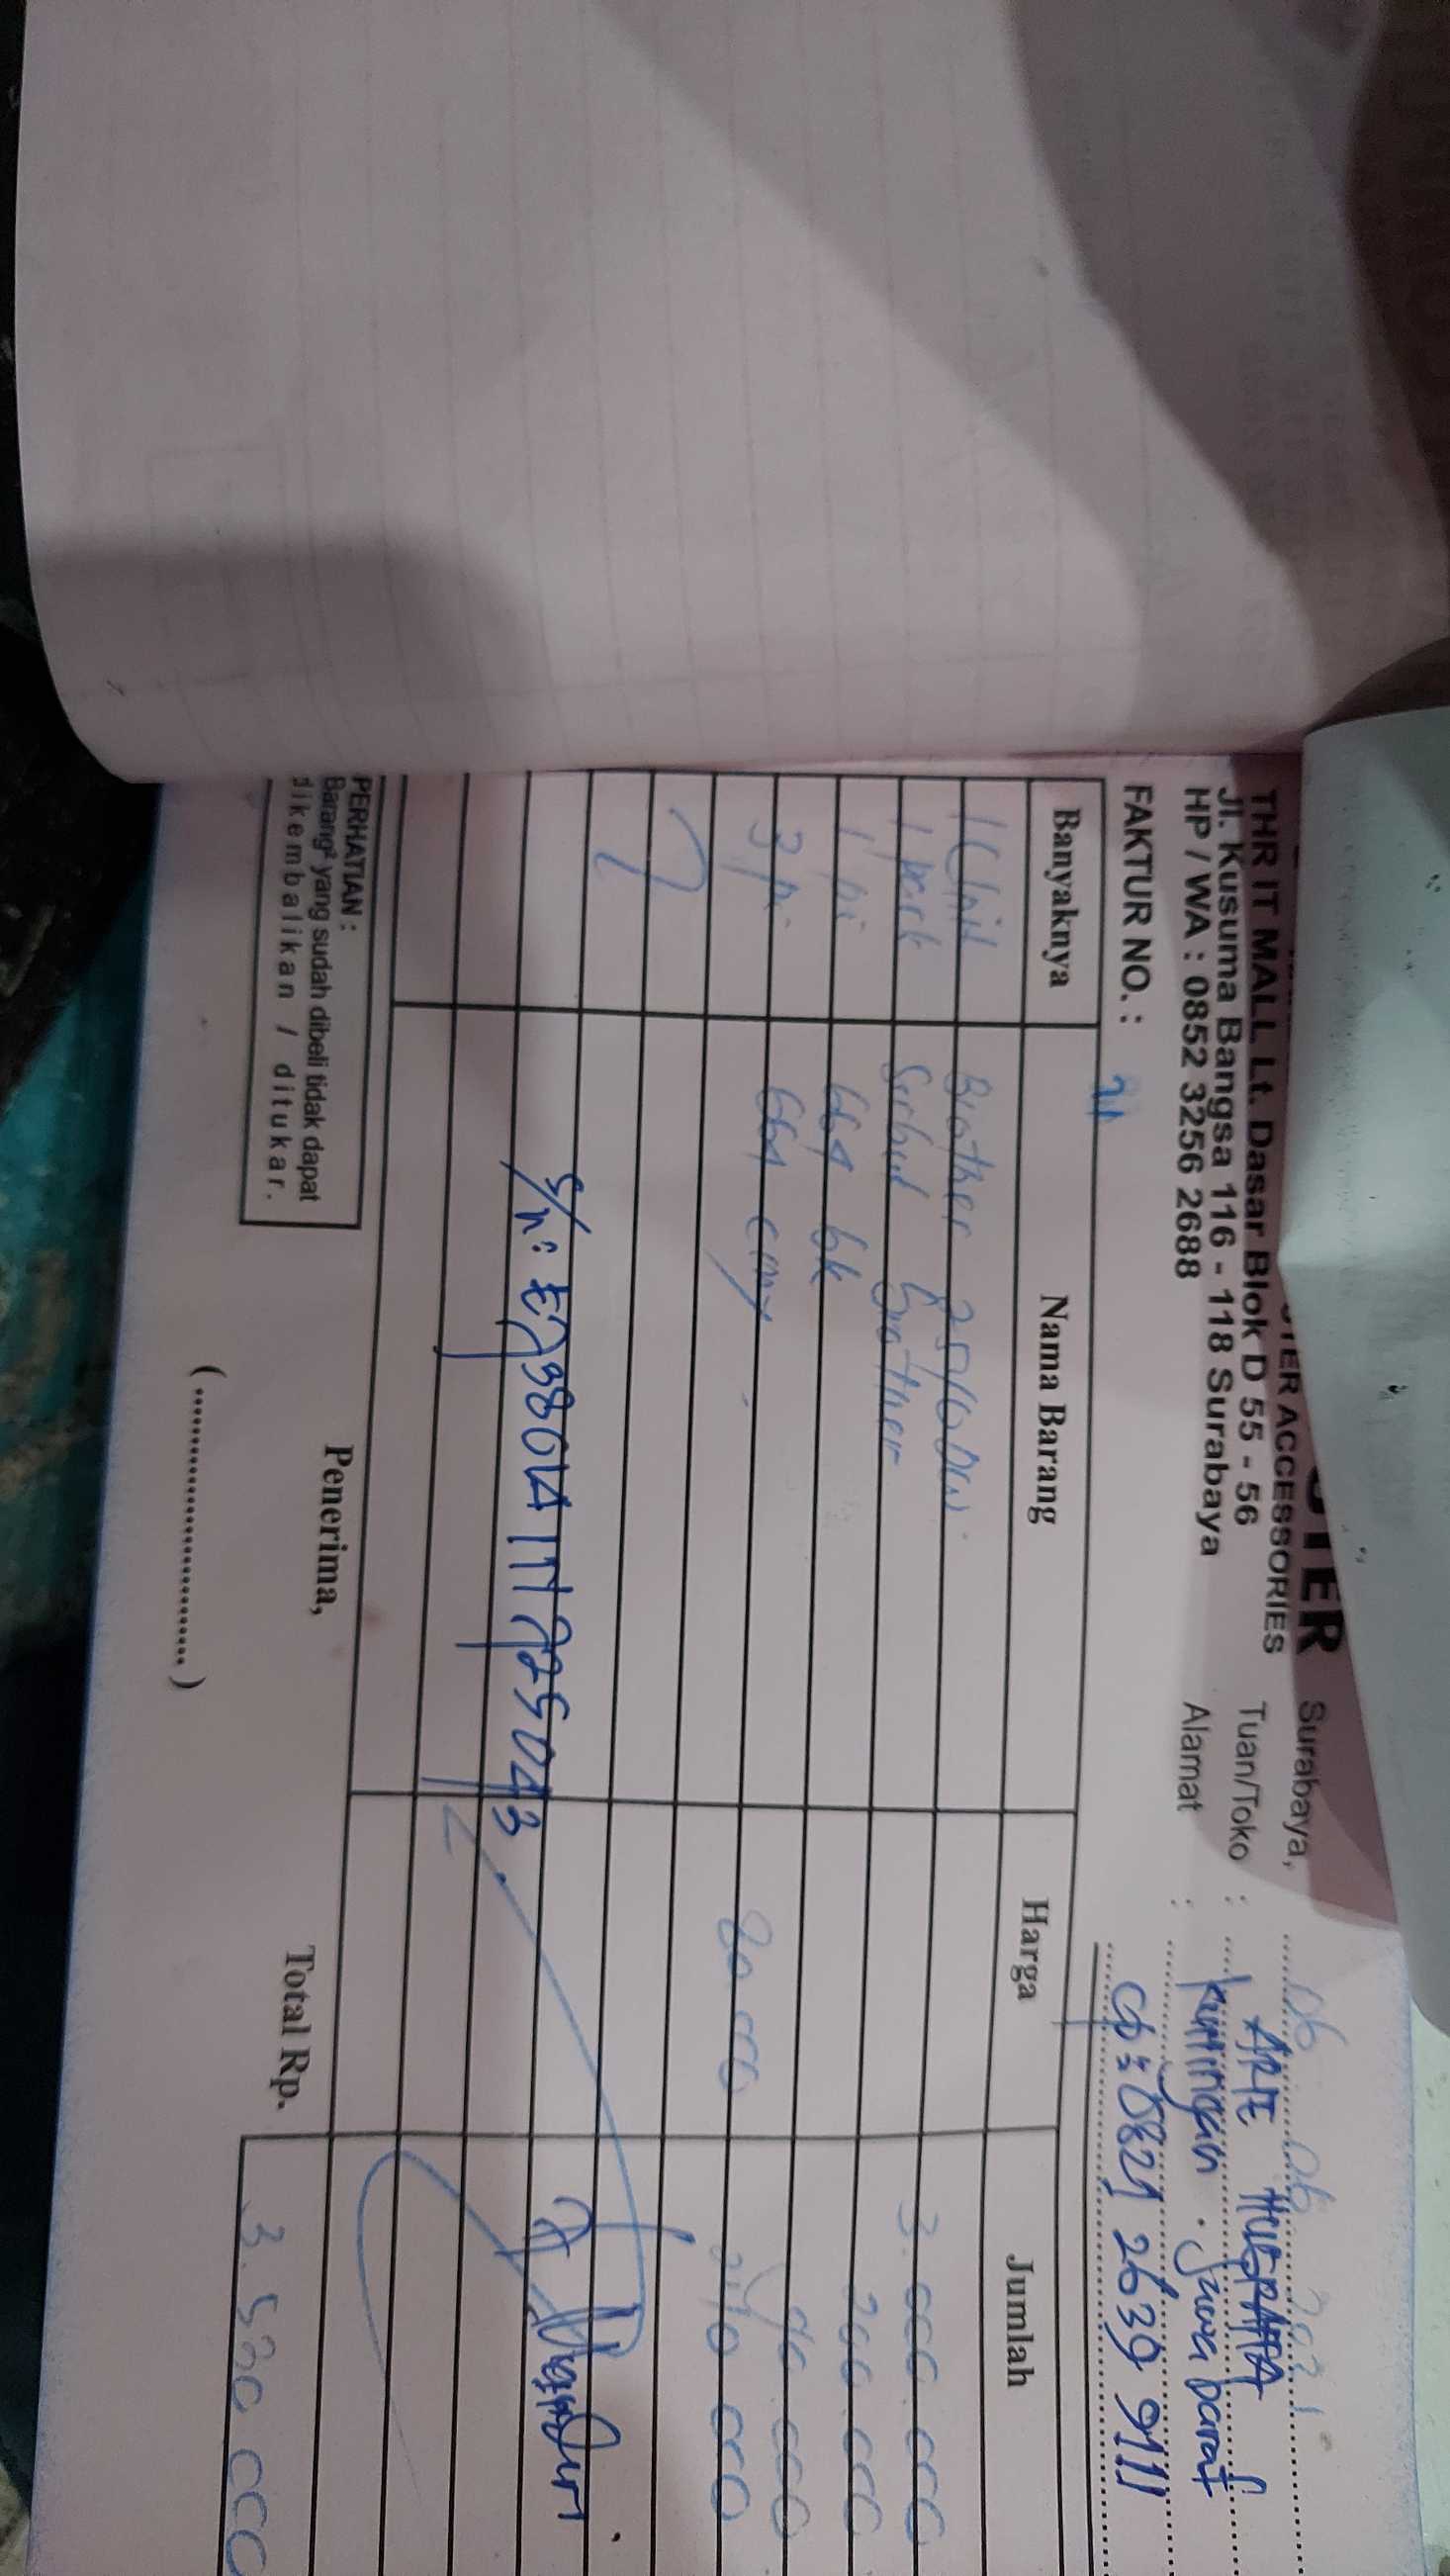 TER
TER ACCESSORIES
THR IT MALL Lt. Dasar Blok D 55 - 56
Jl. Kusuma Bangsa 116 - 118 Surabaya
HP / WA : 0852 3256 2688
Surabaya, 06 06
Tuan/Toko : ARIE
Alamat : Kuningan . Jawa barat
CP : 0821 2639 9111
FAKTUR NO. :
Banyaknya Nama Barang Harga Jumlah
1 Unit Brother 3.000.000
1 Brother 200.000
1 pc 664 bk 90.000
3 pc 664 80.000 240.000
S/n:
PERHATIAN :
Barang² yang sudah dibeli tidak dapat
dikembalikan / ditukar.
Penerima,
(........................)
Total Rp. 3.530.000